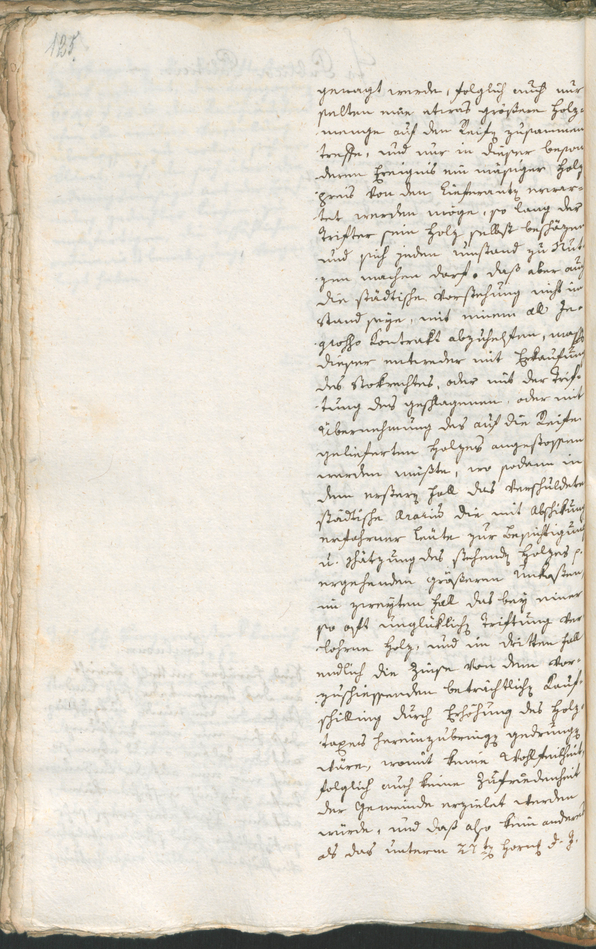 125.
gewagt werde, folglich auch nur
selten eine etwas größere Holz-
menge auf den Reifz zusammen
treffe, und nur in dieser beson
deren Ereignis ein mäsiger Holz
preis von den Lieferantz erwar-
tet werden möge, so lang der
Trifter sein Holz selbst beschäzen
und sich jeden Umstand zu Nut
zen machen darf. Daß aber auch
die städtische Vorstehung nicht im
stand seye, mit einem all In-
grosso Kontrakt abzuhelfen, masse
dieser entweder mit Erkaufung
des Stokrechtes, oder mit der Trif-
tung des geschlagenen, oder mit
Übernehmung des auf die Reife
gelieferten Holzes angestossen
werden müßte, wo sodann in
dem ersten fall das verschuldete
städtische Ararium die mit Abschikung
erfahrner Leute zur Besichtigung
u. schätzung des stehend Holzes
ergehenden größeren Unkosten,
im zweyten fall das bey einer
so oft unglücklich Triftung ver
lohrne Holz, und im dritten fall
endlich die Zinse von dem vor-
zuschiessenden beträchtlich Kauf-
schilling durch Erhöhung des Holz-
taxes hereinzubringen gedrungen
wäre, womit keine Wohlfeilheit,
folglich auch keine Zufriedenheit
der Gemeinde erzielet werden
wurde, und daß also kein anderes
als das unterm 22ten Hornug d. J.